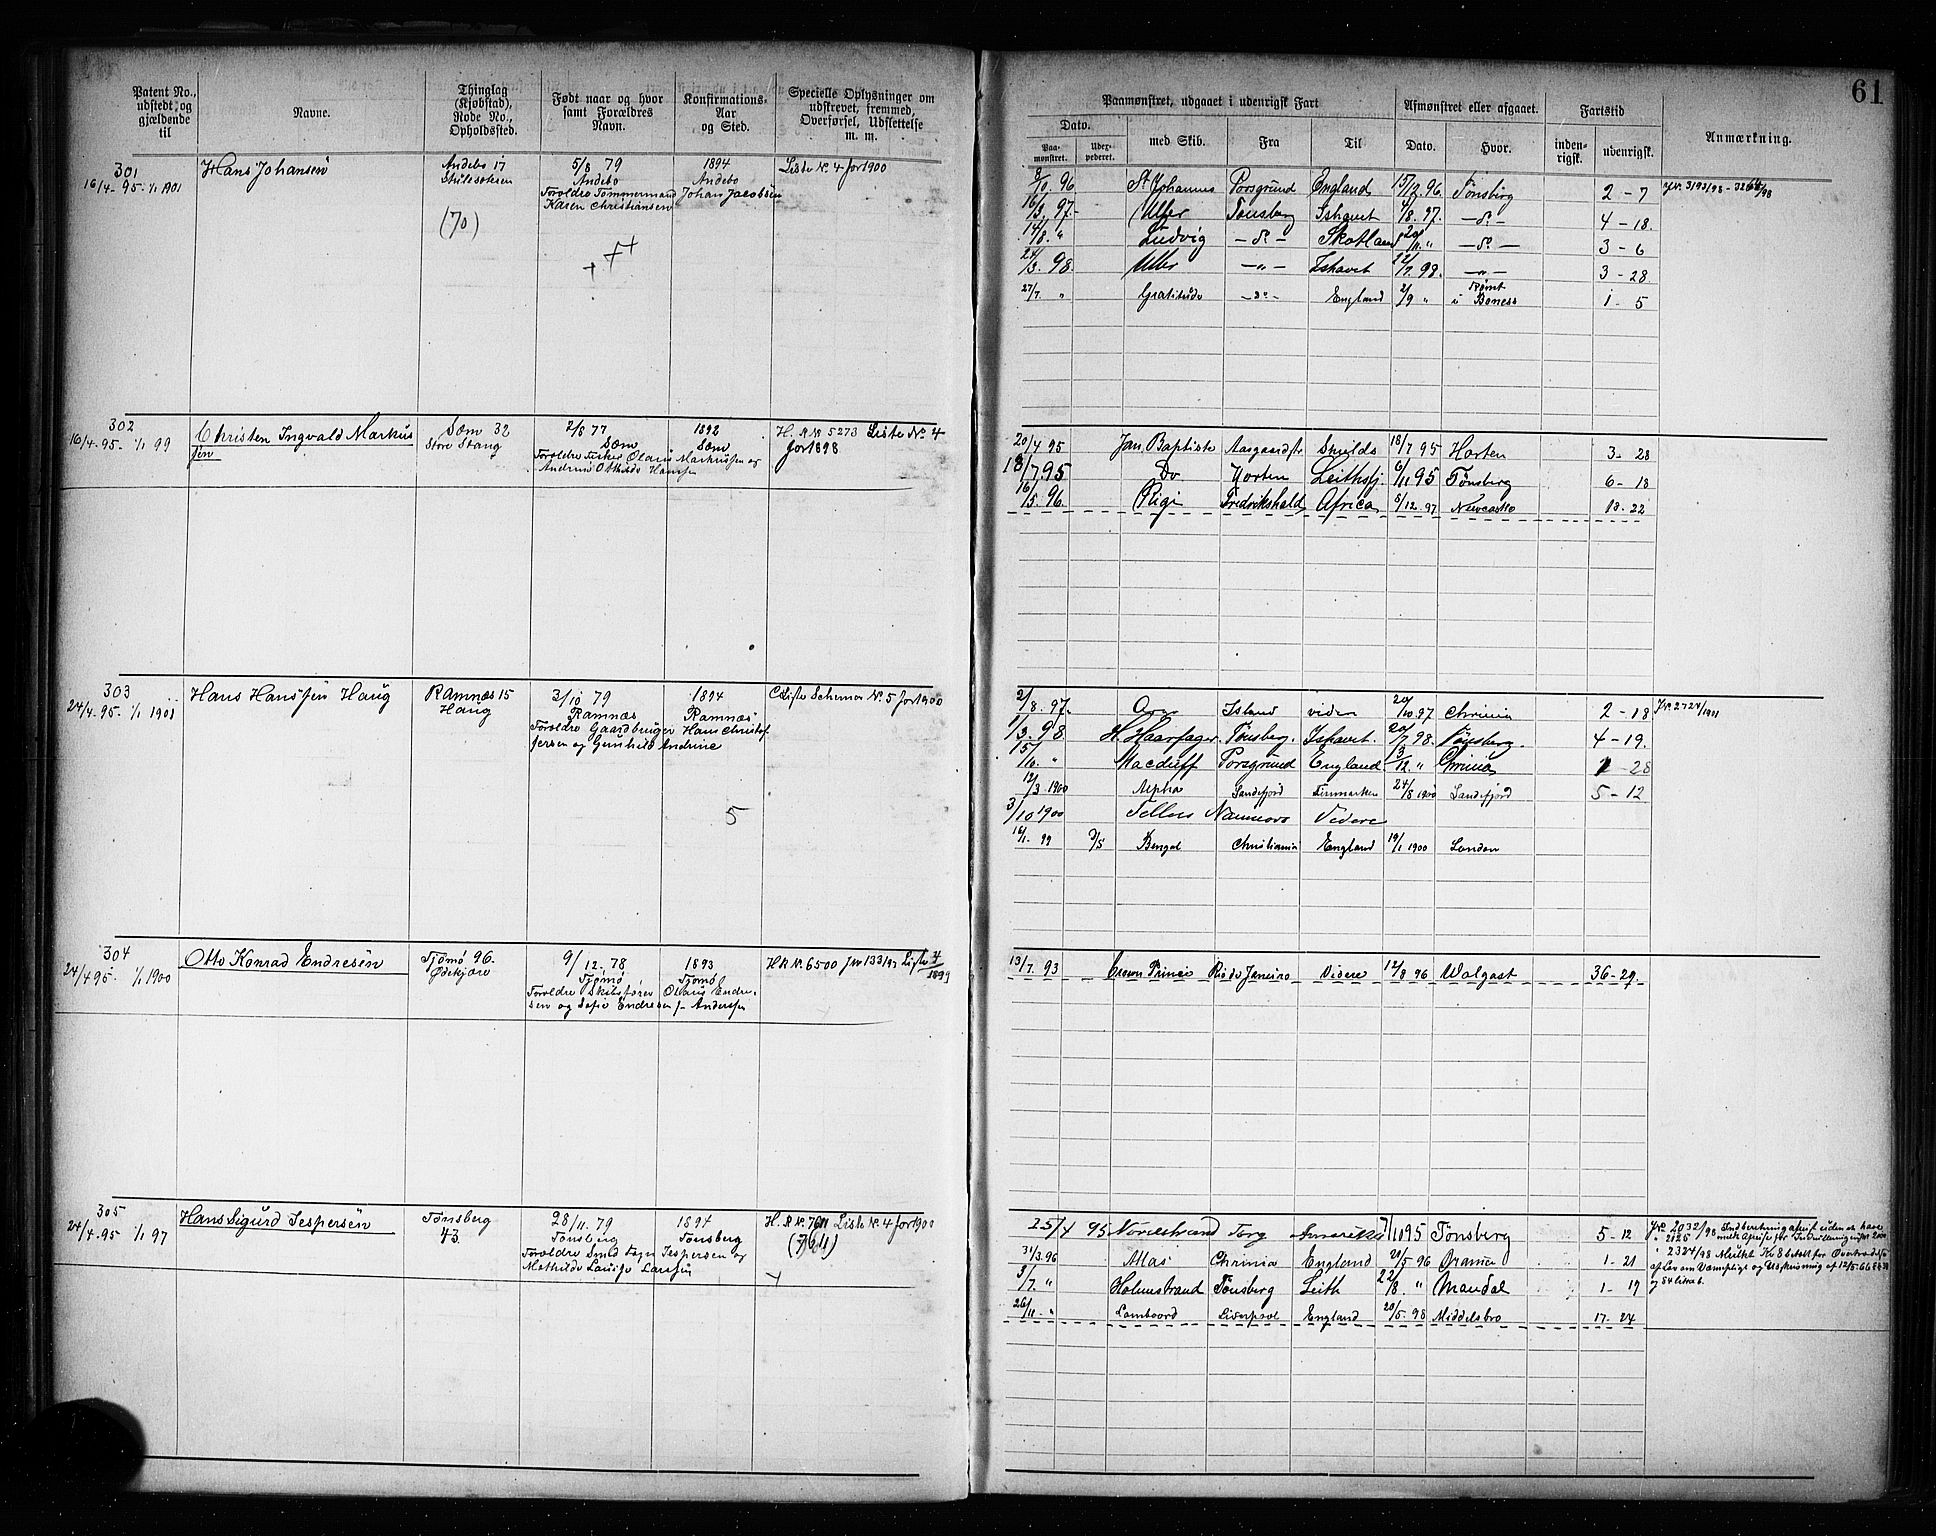 61
Patent No., udstedt og gjældende til
Navne.
Thinglag (Kjøbstad), Rode No., Opholdssted.
Født naar og hvor samt Forældres Navn.
Konfirmations-Aar og Sted.
Specielle Oplysninger om udskrevet, fremmed, Overførsel, Udslettelse m. m.
Paamønstret, udgaaet i udenrigsk Fart
Afmønstret eller afgaaet.
Fartstid
Anmærkning.
Dato.
Paa-mønstret.
Udex-pederet.
med Skib.
Fra
Til
Dato.
Hvor.
inden-rigsk.
udenrigsk.
301
16/4-95. 1/1 1901
Hans Johansen
Andebo 17
5/8 79
Andebo
Forældre Tømmermand Johan Jacobsen
Karen Christiansen
1894
Andebo
Liste N. 4 for 1900
(70)
96 St Johannes Porsgrund England 15/12 96 Tønsberg 2-7
16/3 97. Uller Tønsberg Ishavet 4/8. 97. -do- 4-18.
14/8. " Ludvig -do- Skotland 20/11. " -do- 3-6
24/3. 98. Uller -"- Ishavet 22/7. 98. -"- 3-28
27/7. " Gratitude -do- England 2/9 " Rømt i Boness 1-5
302
16/4-95. 1/1 99
Christen Ingvald Markussen
Sem 32
Store Stang
2/8 77
Sem
1892
Sem
H. R N 5273 Liste No 4
for 1898
20/4 95 Jan Baptiste Aasgaardstr Shields 18/7 95 Horten 3-28
18/7 95 Do Horten Leith 6/11 95 Tønsberg 6-18
16/5. 96. Rigi Fredrikshald Africa 5/12. 97 Newcastle 18-22
303
24/4-95. 1/1 1901
Hans Hanssen Haug
Ramnæs 15
Haug
3/10 79
Ramnæs
Forældre Gaardbruger Hans Christof-
fersen og Gunhild Andrine
1894
Ramnæs
Liste Schema N. 5 for 1900
5
2/8. 97. Island videre 20/10. 97 Chrinia 2-18 J.N. 2724/1901
1/3. 98 H. Haarfager. Tønsberg. Ishavet. 20/7 98. Tønsberg. 4-19.
" Macduff Porsgrund England 3/12. " Chrinia 1-28
12/3. 1900 Alpha Sandefjord Finmarken 24/8 1900 Sandefjord 5-12
3/10 1900 Tellus Videre
16/1. 99 3/5 Bengal Christiania England 19/1 1900 London
304
24/4 95. 1/1 1900
Otto Konrad Endresen
Tjømø 96.
Ødekjære
9/12. 78
Tjømø
Forældre Skibsfører Olaus Endre-
sen og Sofie Endresen f. Anderssen
1893
Tjømø
H R N. 6500 Liste 4/1899
13/7. 93 Crown Prince Rio de Janeiro Videre 12/8 96 Wolgast 36-29.
305
24/4-95 1/1 97
Hans Sigurd Jespersen
Tønsberg
43.
28/11. 79
Tønsberg
Forældre Smed Jespersen og
Mathilde Lovise Larssen
1894
Tønsberg
H. R N. 7611 Liste N. 4 for 1900
(7611)
25/4 95 Norestrand America 7/11 95 Tønsberg 5-12
31/3. 96 Atlas Chrinia England 20/5 96 1-21
3/7. " Holmestrand Tønsberg Leith 22/8. " Mandal 1-19
26/11. " Liverpool England 20/5. 98 Middelsbro 17-24